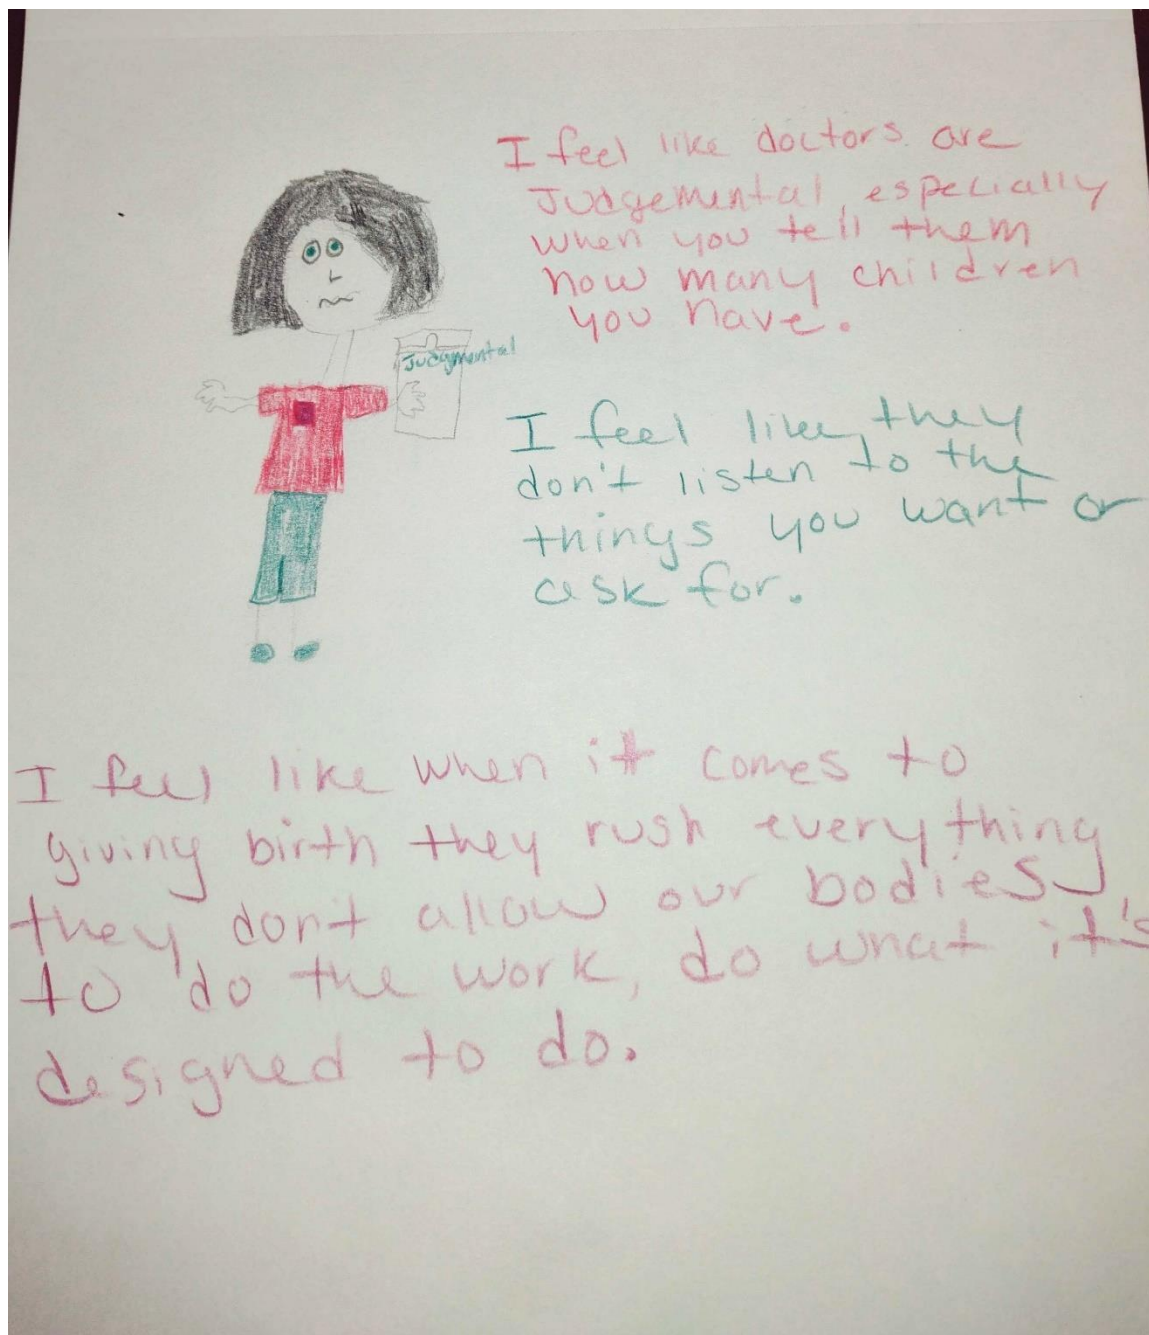 I feel like doctors are
Judgemental, especially
when you tell them
how many children
you have.
Judgmental
I feel like they
don't listen to the
things you want or
ask for.
I feel like when it comes to
giving birth they rush everything
they don't allow our bodies
to do the work, do what it's
designed to do.